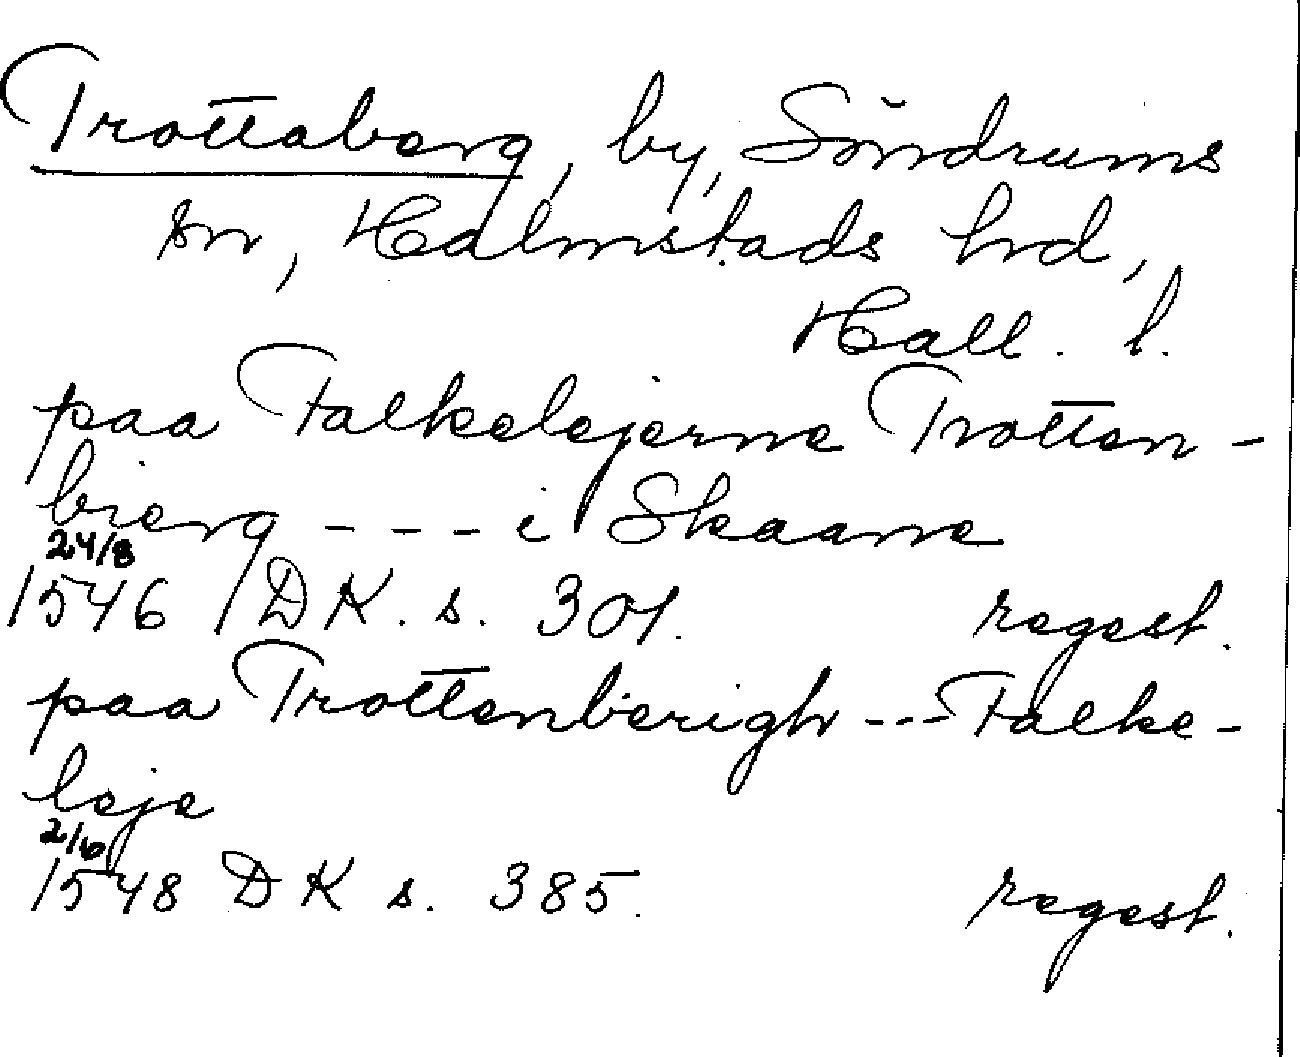 Trottaberg, by, Söndrums
sn, Halmstads hrd,
Hall. l.
paa Falkelejerne Trotten-
bierg - - - i Skaane
24/8
1546 DK. s. 301. regest.
paa Trottenberigh - - - Falke-
leje
2/6
1548 DK s. 385. regest.